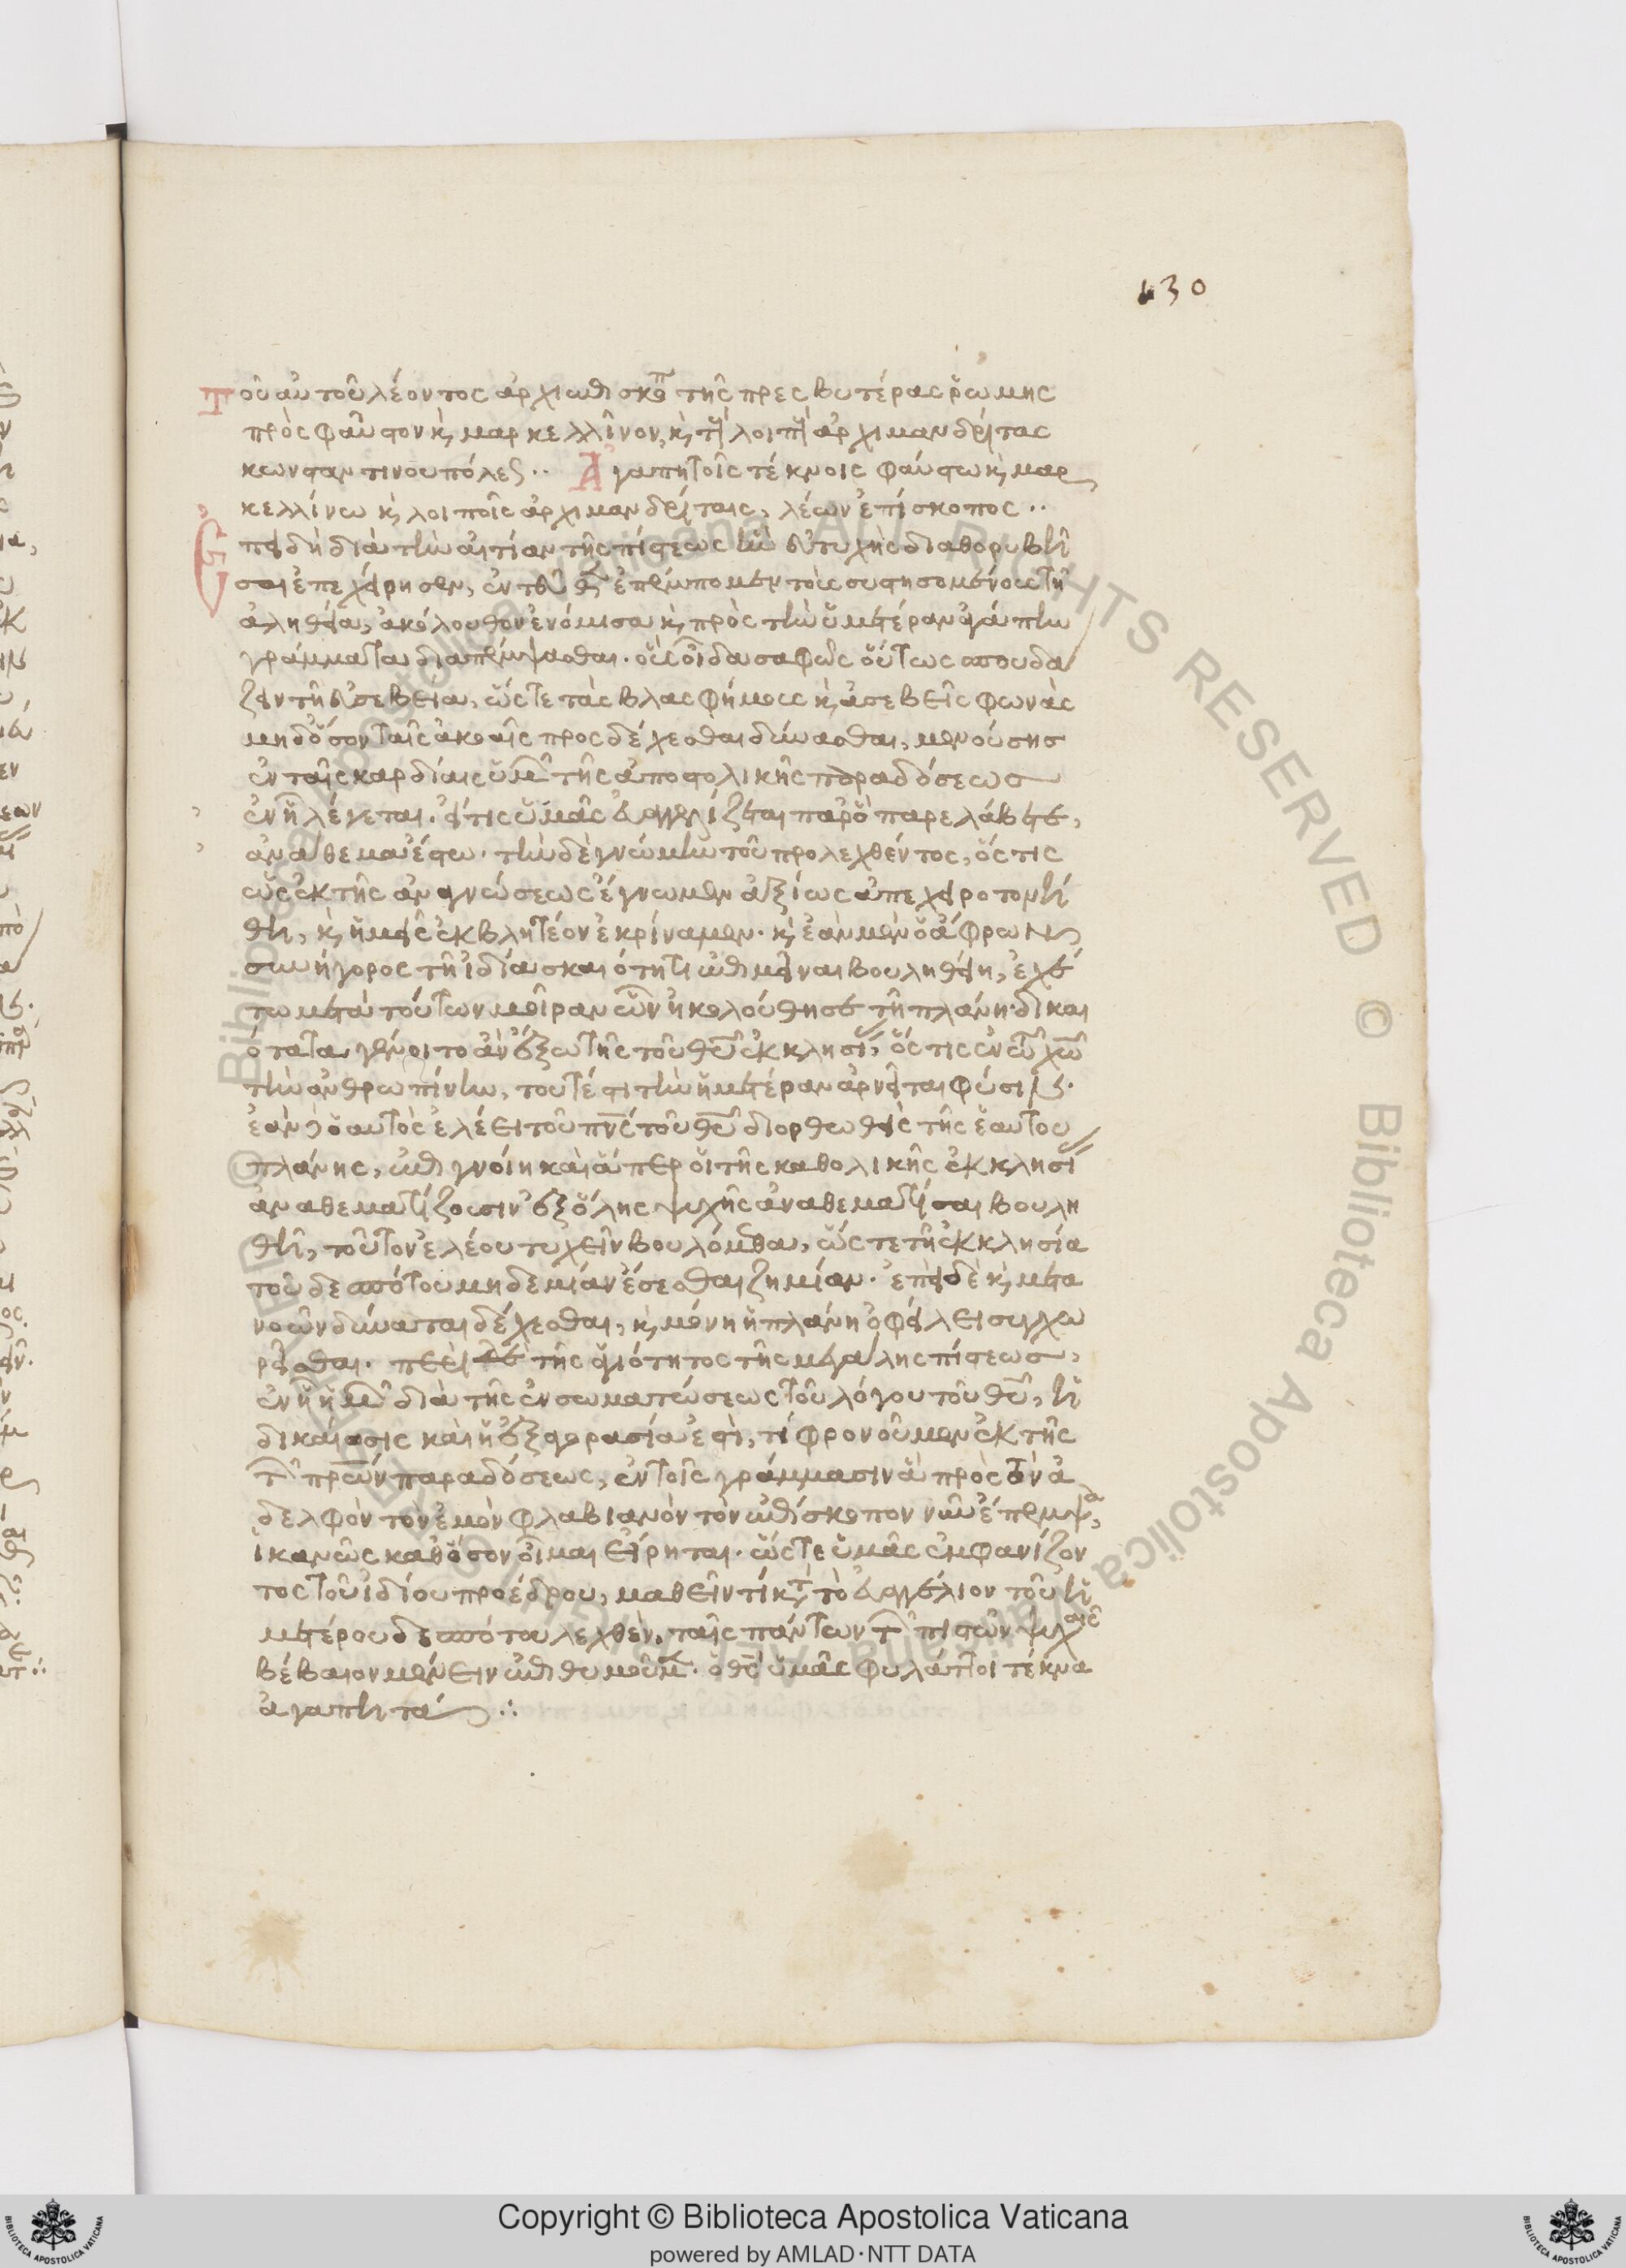 130
Τοῦ αὐτοῦ λέοντος ἀρχιεπισκοπ τῆς πρεσβυτέρας ῥώμης
πρὸς φαῦστον κ μαρκελλῖνον, κ τ λοιπ ἀρχιμανδρίτας
κωνσταντινουπόλεως·· Ἀγαπητοῖς τέκνοις φαύστω κ μαρ
κελλίνω κ λοιποῖς ἀρχιμανδρίταις, λέων ἐπίσκοπος··
Ἐπειδὴ διὰ τὴν αἰτίαν τῆς πίστεως ἣν εὐτυχὴς διαθορυβῆ
σαι ἐπεχείρησεν, ἐπέμπομεν τοὺς συστησομένους τῆ
ἀληθεία, ἀκόλουθον ἐνόμισα κ πρὸς τὴν ὑμετέραν ἀγάπην
γράμματα διαπέμψασθαι· οὓς οἶδα σαφῶς οὕτως σπουδά
ζειν τῆ εὐσεβεία, ὥςτε τὰς βλασφήμους κ ἀσεβεῖς φωνὰς
μηδ' ὅσον ταῖς ἀκοαῖς προσδέχεσθαι δύνασθαι, μενούσης
ἐν ταῖς καρδίαις ὑμῶν τῆς ἀποστολικῆς παραδόσεως
ἐν ἧ λέγεται· εἴ τις ὑμᾶς εὐαγγελίζεται παρ' ὃ παρελάβετε,
ἀνάθεμα ἔστω· τὴν δὲ γνώμην τοῦ προλεχθέντος, ὅς τις
ὡς ἐκ τῆς ἀναγνώσεως ἔγνωμεν ἀξίως ἀπεχειροτονή
θη, κ ἡμεῖς ἐκβλητέον ἐκρίναμεν· κ ἐὰν μὲν ὁ ἄφρων
συνήγορος τῆ ἰδία σκαιότητι ἐπιμεῖναι βουληθείη, ἐχέ
τω μετὰ τούτων μοῖραν ὧν ἠκολούθησε τῆ πλάνη· δικαι
ότατα γένοιτο ἂν ἔξω τῆς τοῦ θυ ἐκκλησίας, ὅς τις ἐν τῶ χω
τὴν ἀνθρωπίνην, τουτέστι τὴν ἡμετέραν ἀρνεῖται φύσιν·
ἐὰν δὲ ὁ αὐτὸς ἐλέει τοῦ πνς τοῦ θυ διορθωθεὶς τῆς ἑαυτοῦ
πλάνης, ἐπιγνοίη καὶ ἅπερ οἱ τῆς καθολικῆς ἐκκλησίας
ἀναθεματίζουσιν ἐξ ὅλης ψυχῆς ἀναθεματίσαι βουλη
θῆ, τοῦτον ἐλέου τυχεῖν βουλόμεθα, ὥςτε τῆ ἐκκλησία
τοῦ δεσπότου μηδεμίαν ἔσεσθαι ζημίαν· ἐπεὶ δὲ κ μετα
νοῶν δύναται δέχεσθαι, κ μόνη ἡ πλάνη ὀφείλει συγχω
ρεῖσθαι· περὶ τῆς ἁγιότητος τῆς μεγάλης πίστεως,
ἐν ἧ ἡμῶν διὰ τῆς ἐνσωματώσεως τοῦ λόγου τοῦ θυ, ἡ
δικαίωσις καὶ ἡ ἐξαγορασία ἐστὶ, τί φρονοῦμεν ἐκ τῆς
τῶν πρων παραδόσεως, ἐν τοῖς γράμμασιν ἃ πρὸς τὸν ἀ
δελφὸν τὸν ἐμὸν φλαβιανὸν τὸν ἐπίσκοπον νῦν ἔπεμψα,
ἱκανῶς καθόσον οἶμαι εἴρηται· ὥςτε ὑμᾶς ἐμφανίζον
τος τοῦ ἰδίου προέδρου, μαθεῖν τί κτ τὸ εὐαγγέλιον τοῦ ἡ
μετέρου δεσπότου λεχθὲν, ταῖς πάντων τῶν πιστῶν ψυχαῖς
βέβαιον μένειν ἐπιθυμοῦμεν· ὁ θς ὑμᾶς φυλάττοι τέκνα
ἀγαπητά ∴